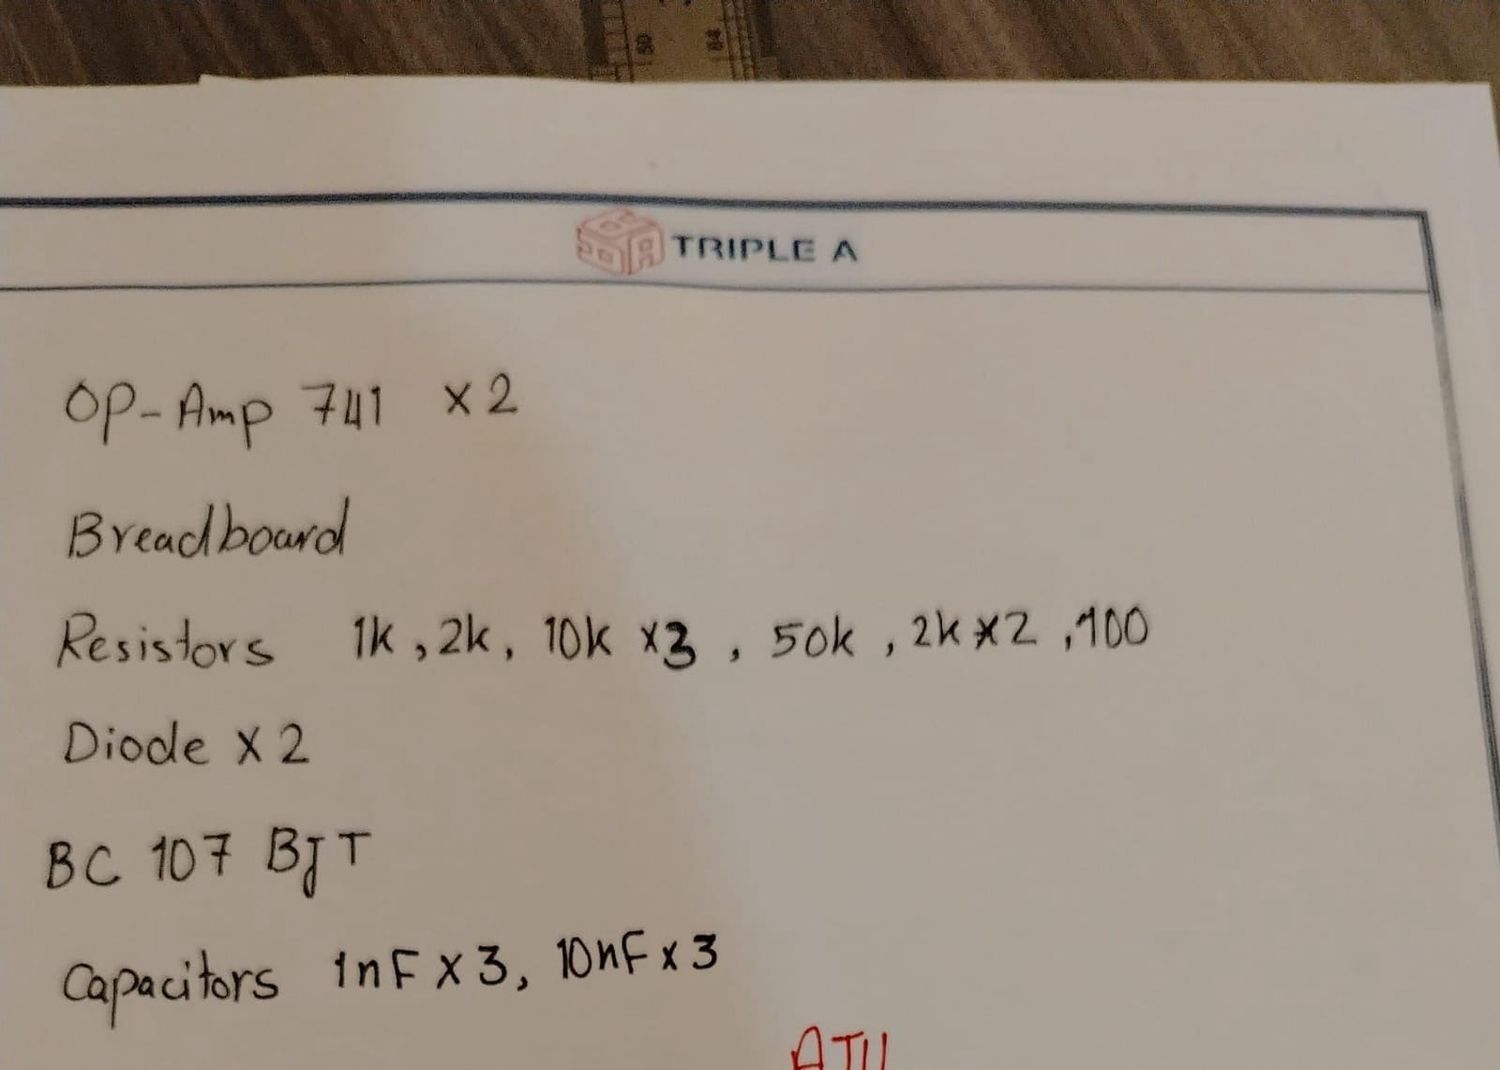 TRIPLE A
OP-Amp 741 x 2
Breadboard
Resistors 1k, 2k, 10k x3, 50k, 2k x2, 100
Diode x 2
BC 107 BJT
Capacitors 1nF x 3, 10nF x 3